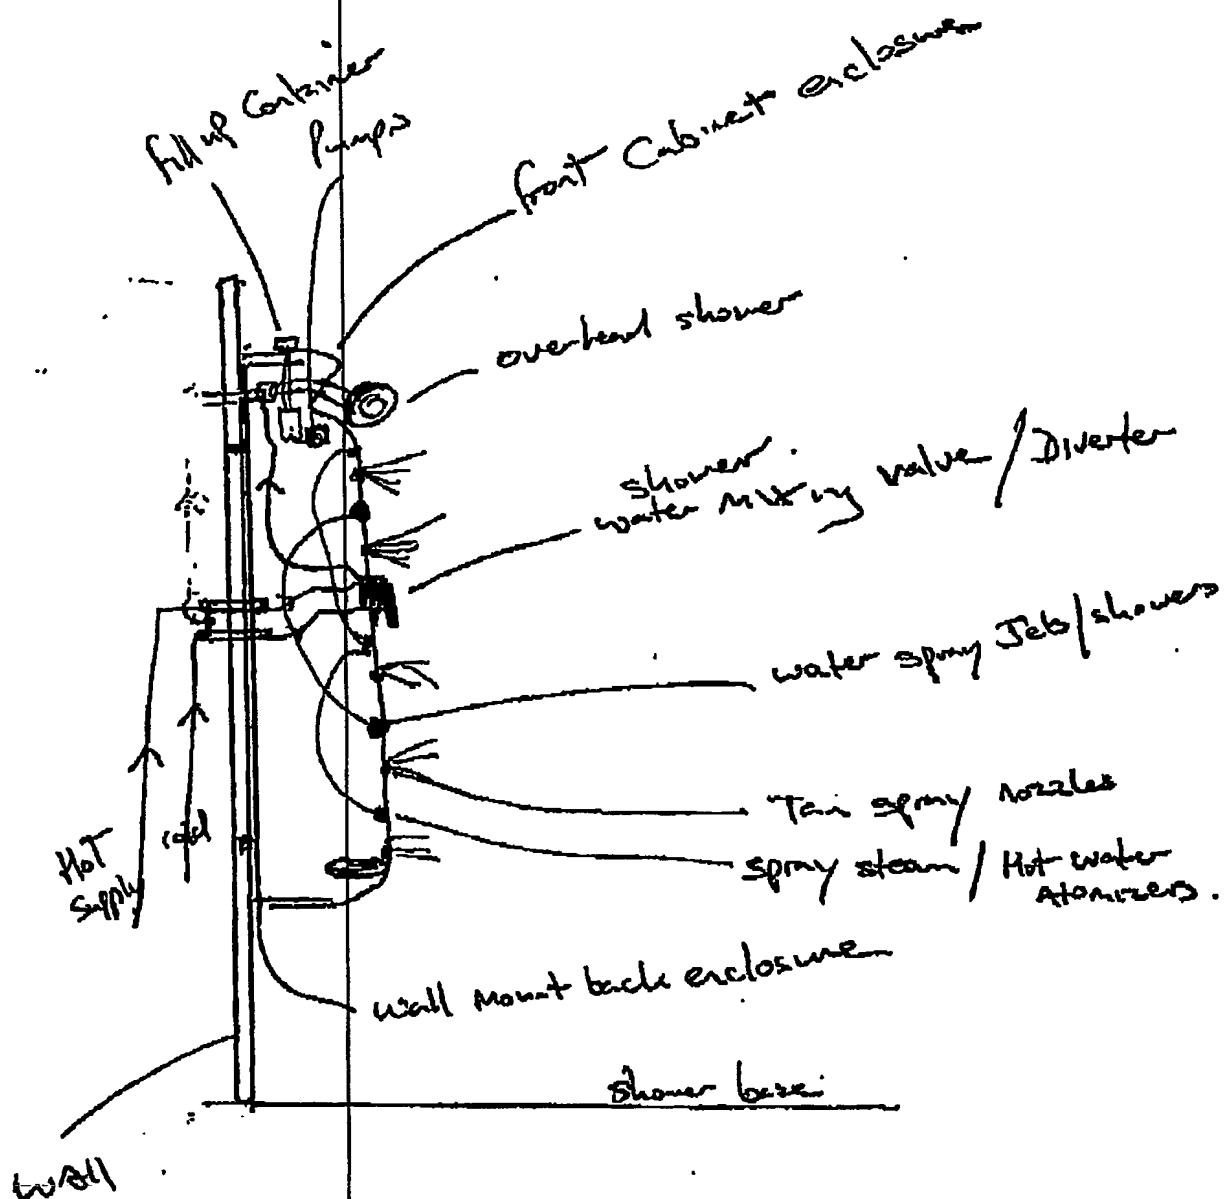 fill up Container
Pumps
front Cabinet enclosure
overhead shower
shower
water Mixing valve / Diverter
water spray Jets/showers
Tan spray nozzles
spray steam / Hot water
Atomizers.
Hot
supply
cold
wall mount back enclosure
shower base
wall